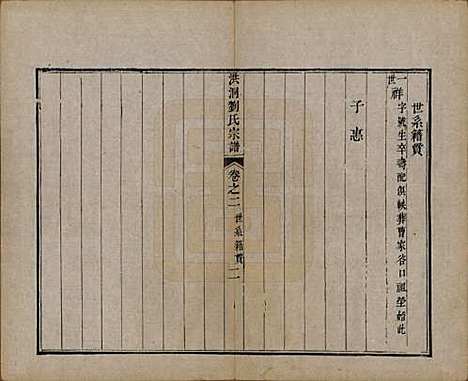 世系籍貫
一世
祥字號生卒壽配俱軼葬曹家谷口祖塋始此
子惠
洪洞劉氏宗譜
卷之二 世系籍貫
二